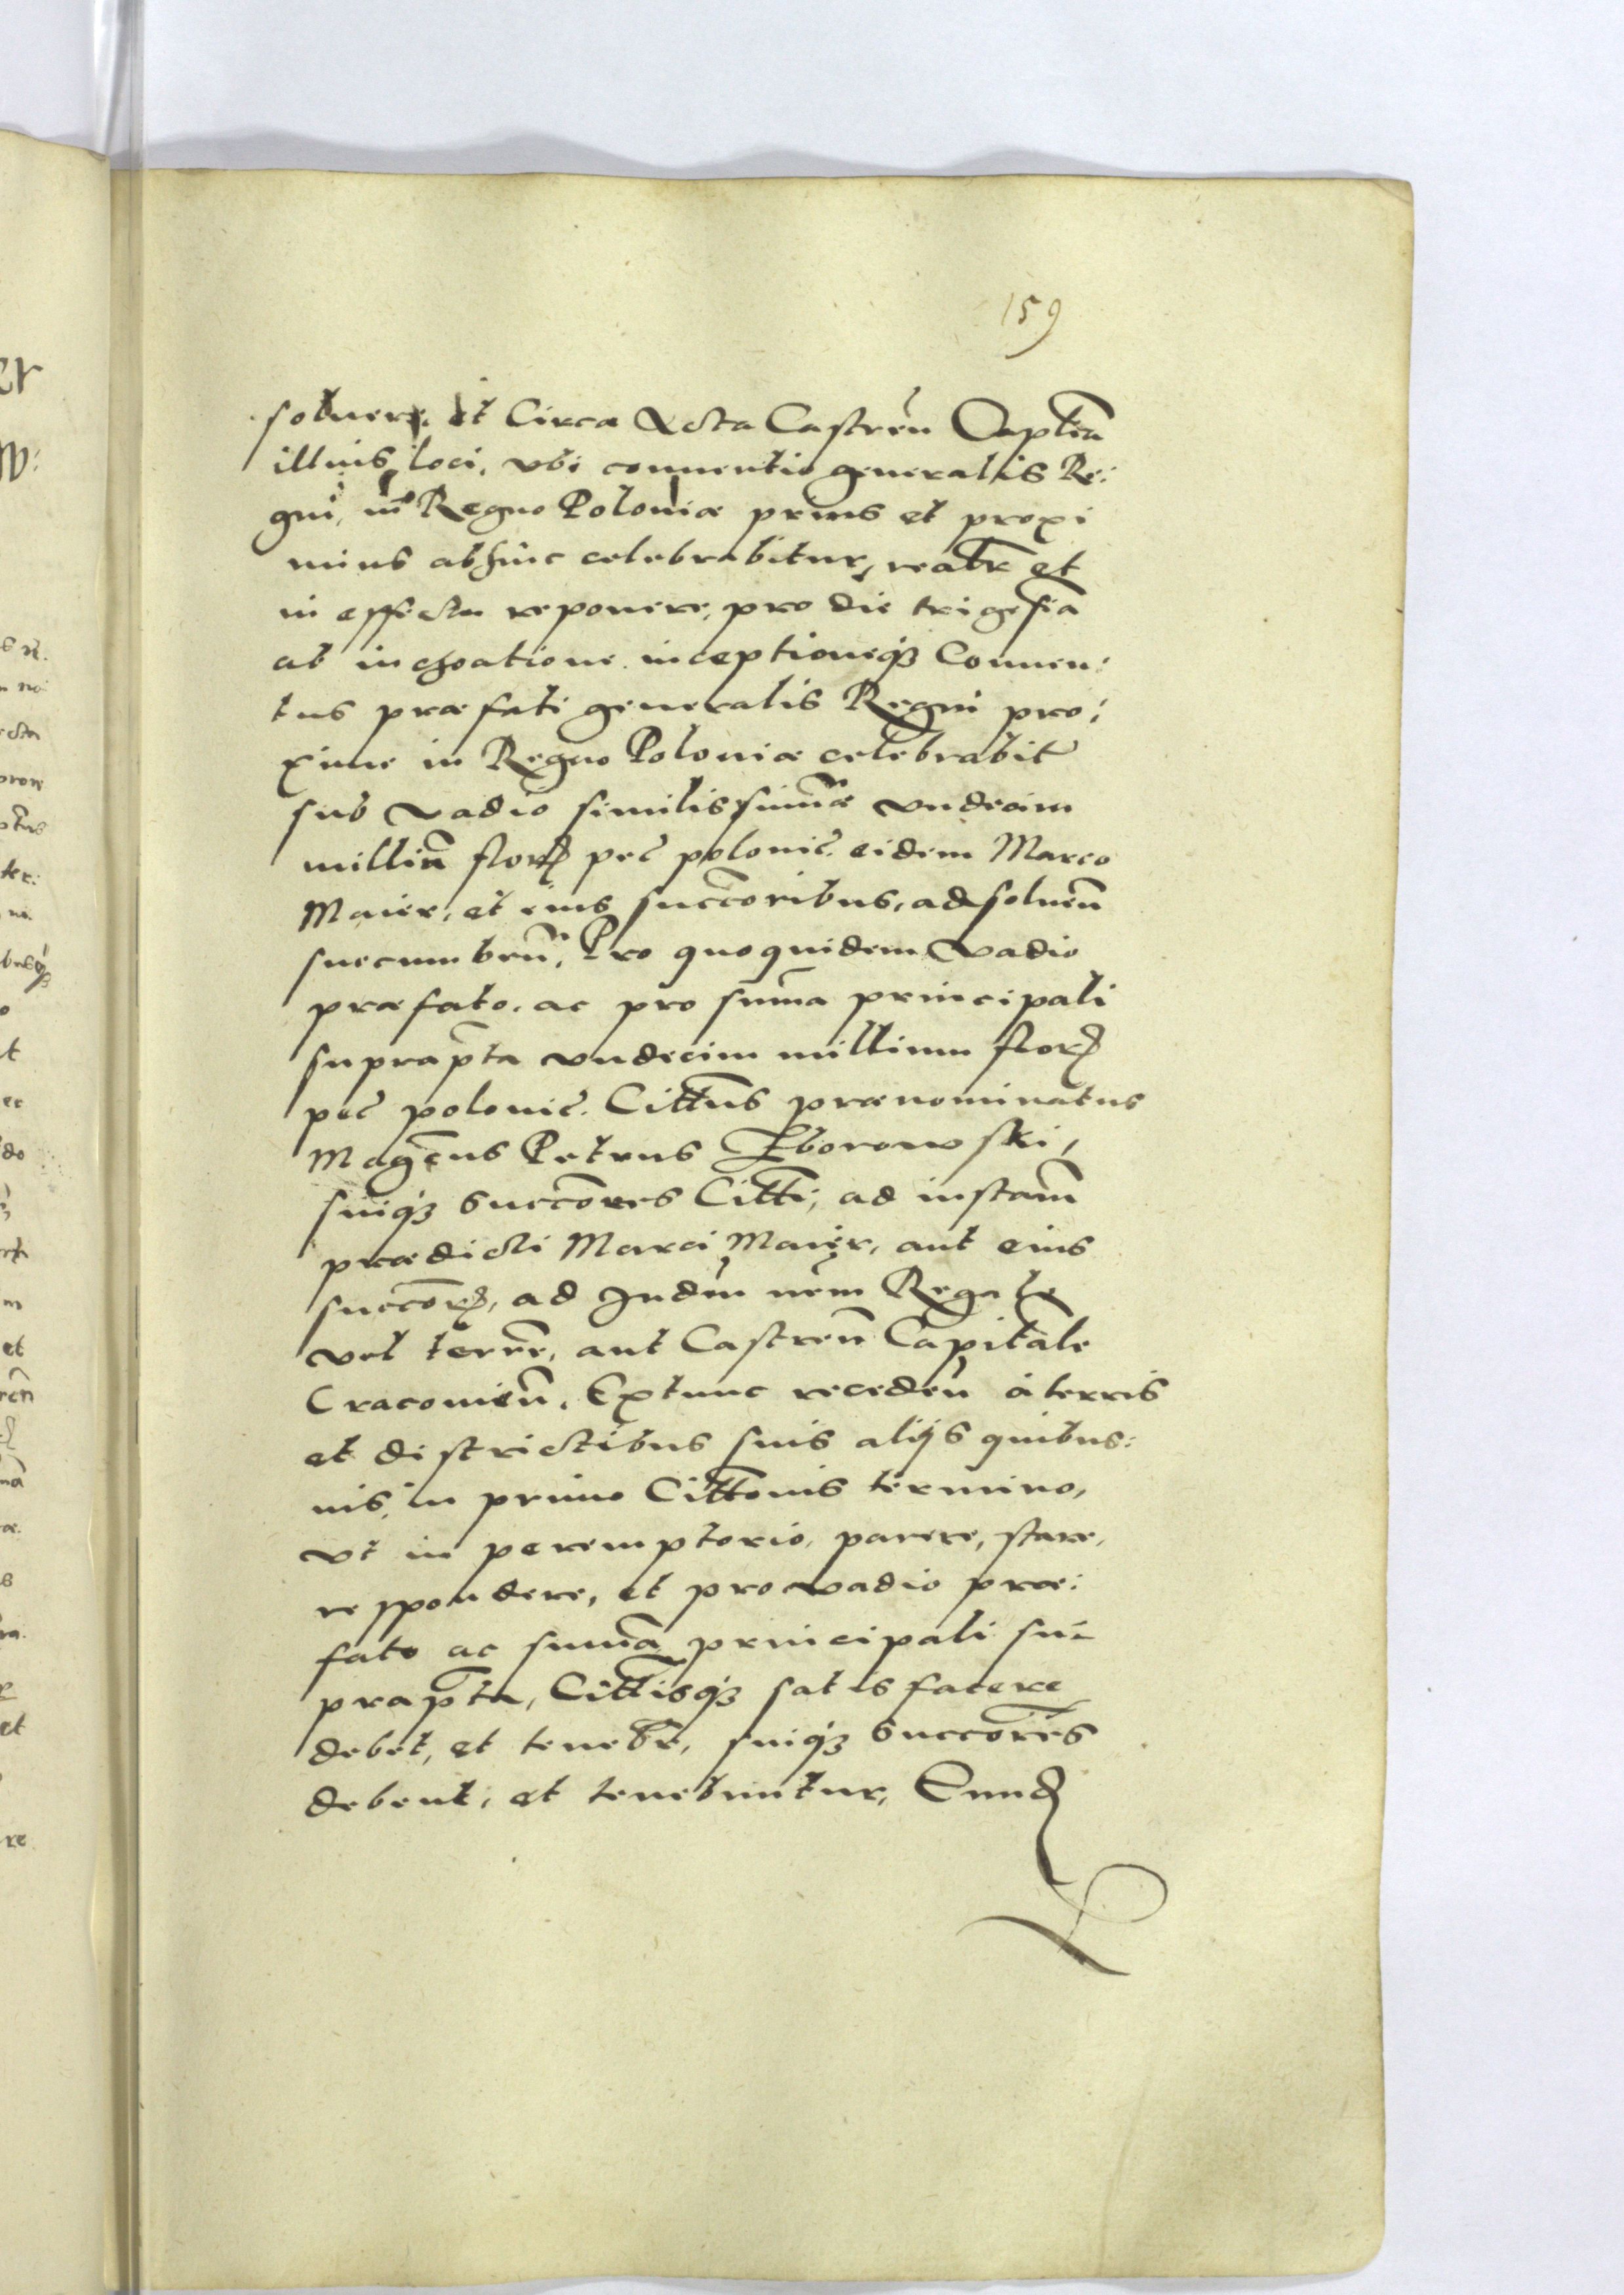 159
soluere, et Circa Acta Castren̄ Capten̄
illius loci, vbi conuentio generalis Re:
gni, in Regno Poloniæ prius et proxi
mius abhinc celebrabitur, realr̄ et
in effectu reponere, pro die trigesia̅
ab inchoatione inceptioneq3 Conuen:
tus præfati generalis Regni pro:
xime in Regno Poloniæ celebrabit̄
sub vadio similis sum̄æ vndecim
milliu̅ flor̄ pec̄ polonic̄. eidem Marco
Maier, et eius succ̄oribus, ad soluen̄
succumben̄. Pro quoquidem vadio
præfato, ac pro sum̄a principali
suprap̄ta vndecim millium flor̄
pec̄ polonic̄. Citt̄us prænominatus
Mag̅cus Petrus Zborowski,
suiq3 succ̄ores Citt̄i, ad instam̄
prædicti Marci Maier, aut eius
succ̄or̄, ad Judm̄ nem̄ Regale
vel terrēn, aut Castren̄ Capitale
Cracouien̄. Extunc receden̄ à terris
et districtibus suis alijs quibus:
uis, in primo Citt̄onis termino,
vt in peremptorio, parere, stare,
respondere, et pro vadio præ:
fato ac sum̄a principali su:
prap̄ta, Citt̄isq3 satisfacere
debet, et tenebr̄, suiq3 succ̄ores
debent, et tenebuntur,